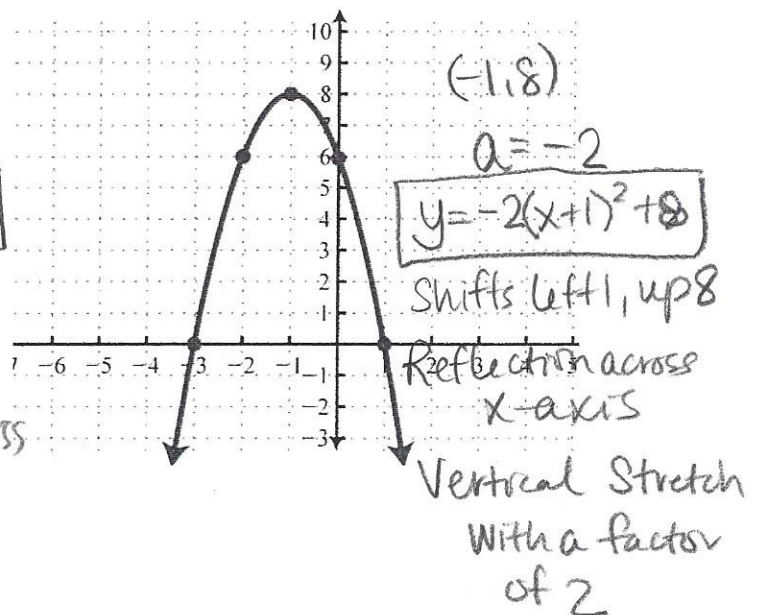 10
9
8
7
6
5
4
3
2
1
-1
-2
-3
7 -6 -5 -4 -3 -2 -1 1 2 3 4 5
(-1,8)
a=-2
y=-2(x+1)²+8
Shifts left 1, up 8
Reflection across
x-axis
Vertical Stretch
With a factor
of 2
ss